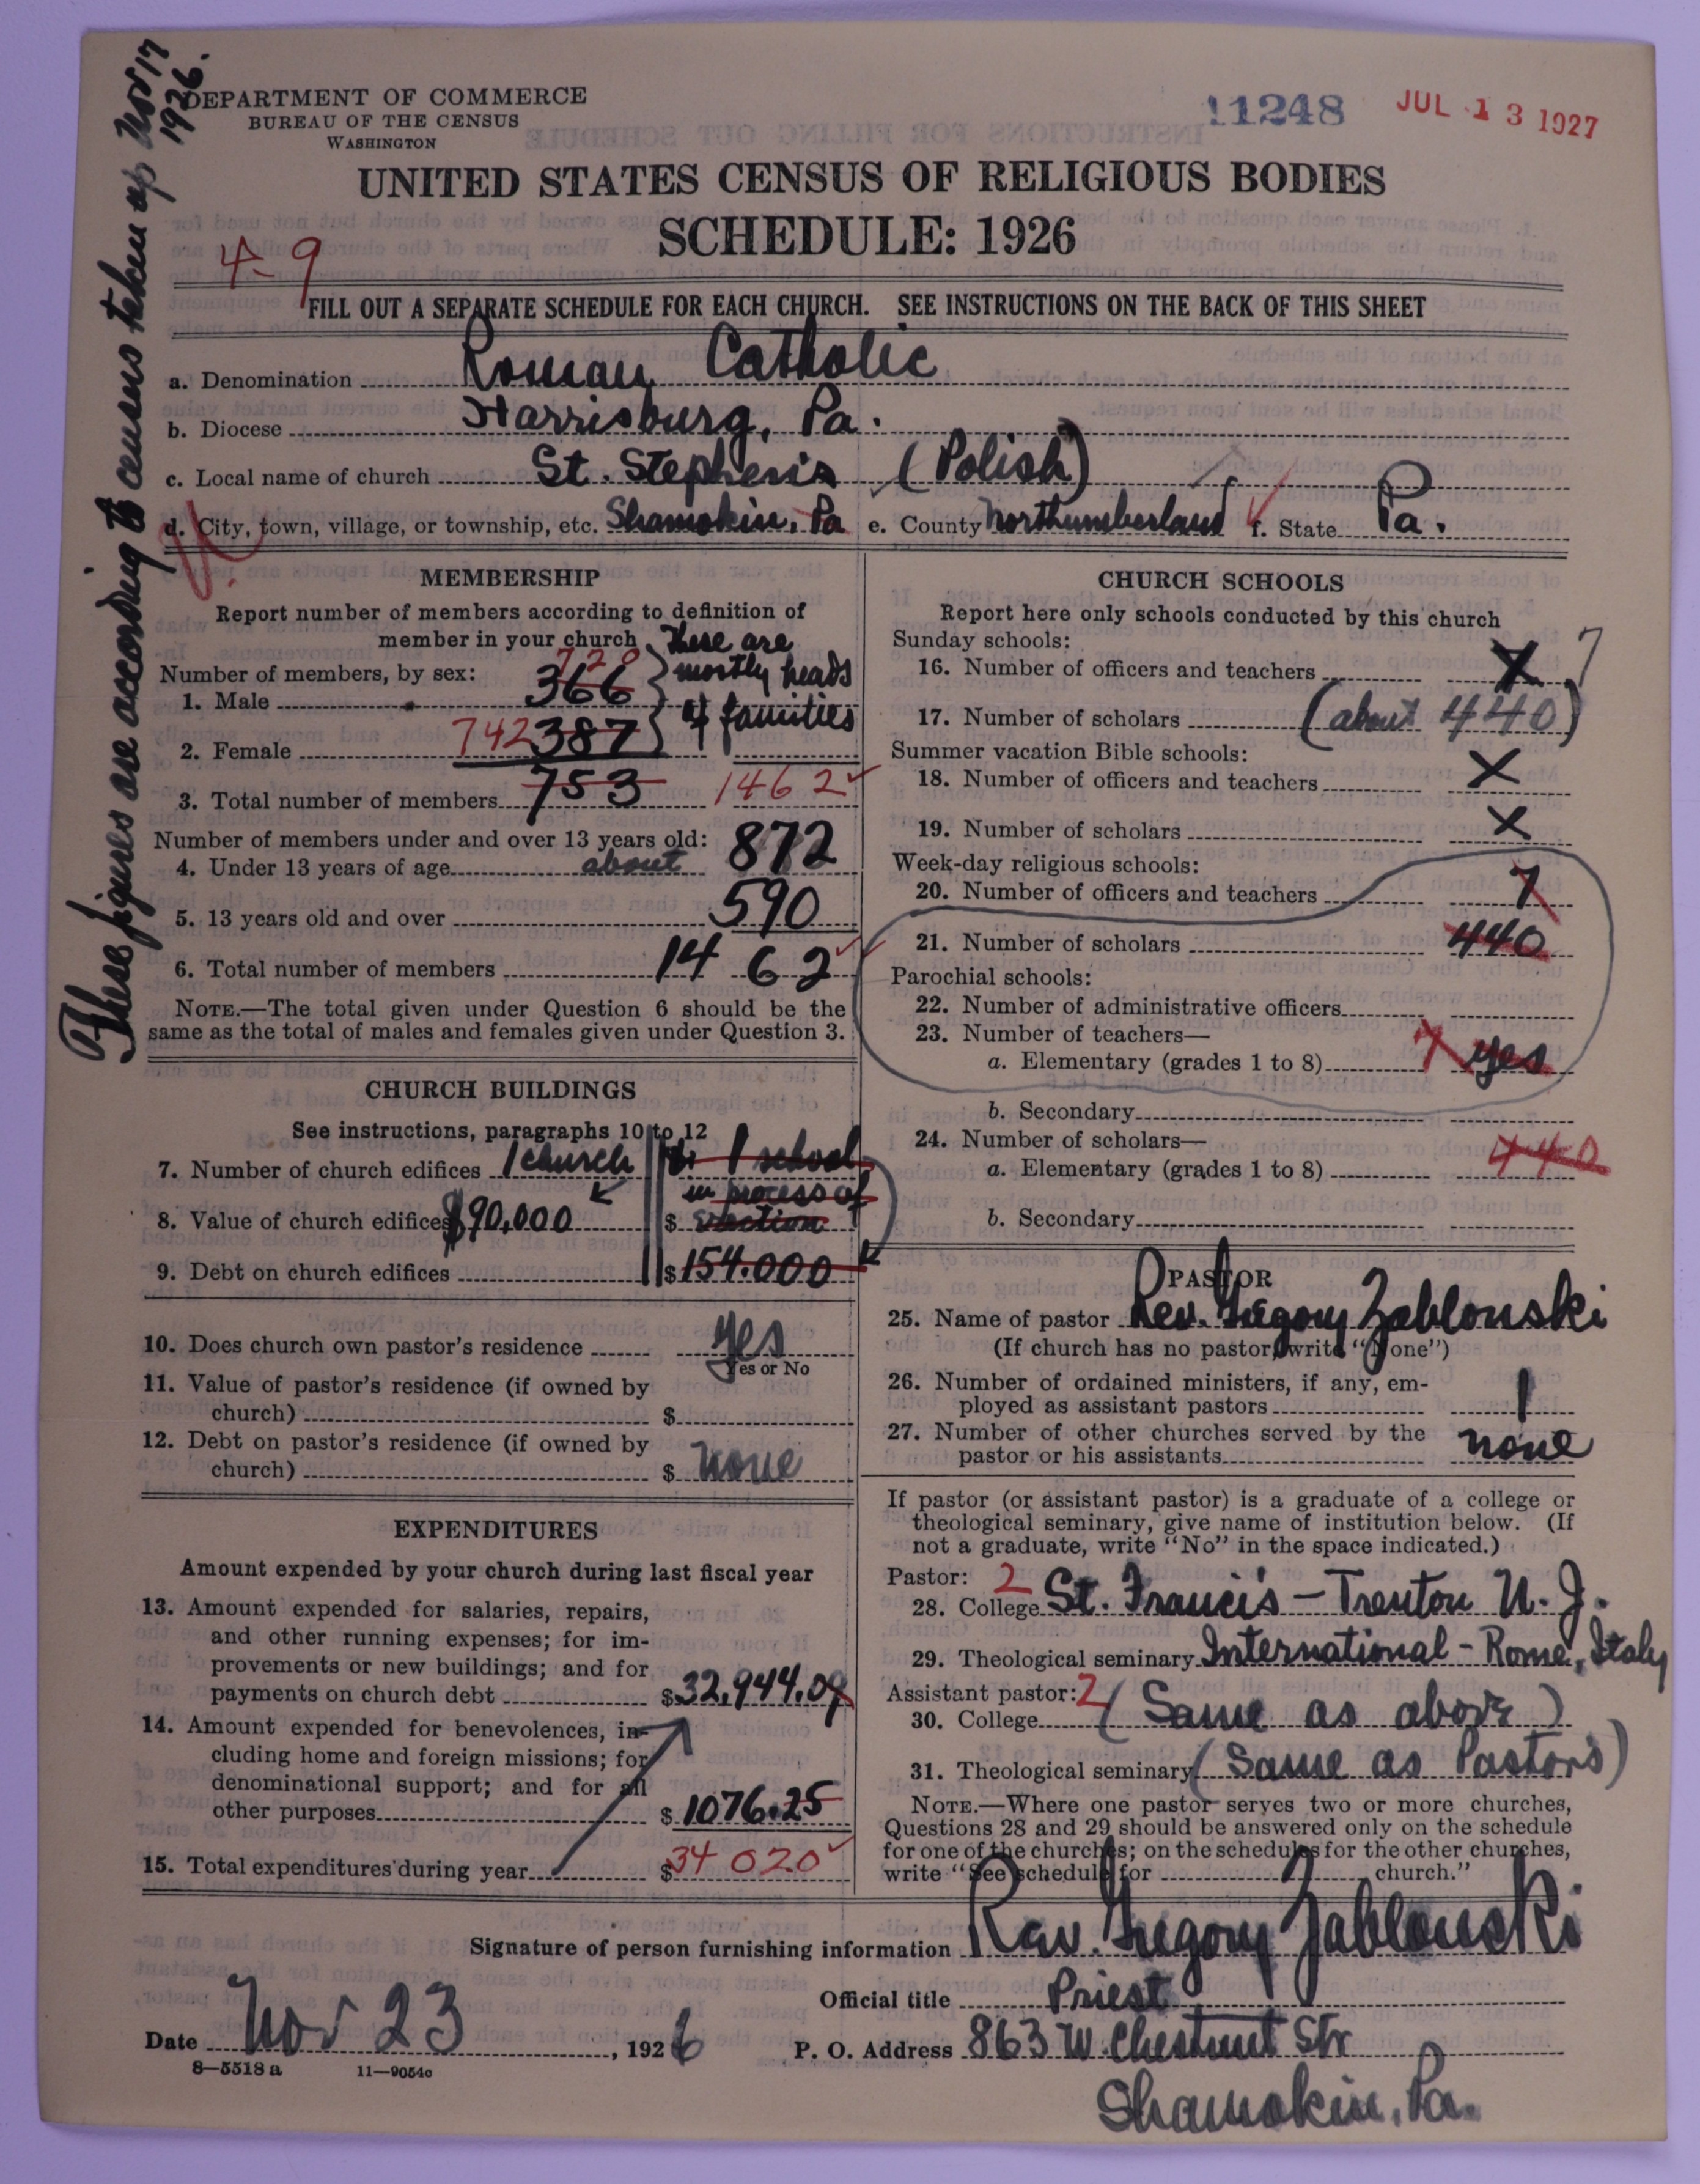 These figures are according to census taken up Nov 17 1926.
DEPARTMENT OF COMMERCE
BUREAU OF THE CENSUS
WASHINGTON
11248 JUL 13 1927
UNITED STATES CENSUS OF RELIGIOUS BODIES
SCHEDULE: 1926
4-9
FILL OUT A SEPARATE SCHEDULE FOR EACH CHURCH. SEE INSTRUCTIONS ON THE BACK OF THIS SHEET
a. Denomination Roman Catholic
b. Diocese Harrisburg, Pa.
c. Local name of church St. Stephen's (Polish)
d. City, town, village, or township, etc. Shamokin, Pa e. County Northumberland f. State Pa.
MEMBERSHIP
Report number of members according to definition of
member in your church
Number of members, by sex:
1. Male 720 366
2. Female 742 387
These are
mostly heads
of families
3. Total number of members 753 1462
Number of members under and over 13 years old:
4. Under 13 years of age about 872
5. 13 years old and over 590
6. Total number of members 1462
NOTE.—The total given under Question 6 should be the
same as the total of males and females given under Question 3.
CHURCH BUILDINGS
See instructions, paragraphs 10 to 12
7. Number of church edifices 1 church 1 school
in process of
8. Value of church edifices $90,000 $ erection
9. Debt on church edifices $154.000
10. Does church own pastor's residence yes
Yes or No
11. Value of pastor's residence (if owned by
church) $
12. Debt on pastor's residence (if owned by
church) $ none
EXPENDITURES
Amount expended by your church during last fiscal year
13. Amount expended for salaries, repairs,
and other running expenses; for im-
provements or new buildings; and for
payments on church debt $32,944.09
14. Amount expended for benevolences, in-
cluding home and foreign missions; for
denominational support; and for all
other purposes $1076.25
15. Total expenditures during year $34 020
CHURCH SCHOOLS
Report here only schools conducted by this church
Sunday schools:
16. Number of officers and teachers X 7
17. Number of scholars (about 440)
Summer vacation Bible schools:
18. Number of officers and teachers X
19. Number of scholars X
Week-day religious schools:
20. Number of officers and teachers 7
21. Number of scholars 440
Parochial schools:
22. Number of administrative officers
23. Number of teachers—
a. Elementary (grades 1 to 8) 7 yes
b. Secondary
24. Number of scholars—
a. Elementary (grades 1 to 8) 440
b. Secondary
PASTOR
25. Name of pastor Rev. Gregory Zablonski
(If church has no pastor, write "None")
26. Number of ordained ministers, if any, em-
ployed as assistant pastors 1
27. Number of other churches served by the
pastor or his assistants none
If pastor (or assistant pastor) is a graduate of a college or
theological seminary, give name of institution below. (If
not a graduate, write "No" in the space indicated.)
Pastor: 2
28. College St. Francis - Trenton N. J.
29. Theological seminary International - Rome, Italy
Assistant pastor: 2
30. College (Same as above)
31. Theological seminary (Same as Pastor's)
NOTE.—Where one pastor serves two or more churches,
Questions 28 and 29 should be answered only on the schedule
for one of the churches; on the schedules for the other churches,
write "See schedule for church."
Signature of person furnishing information Rev. Gregory Zablonski
Official title Priest
Date Nov 23, 1926 P. O. Address 863 W. Chestnut Str
Shamokin, Pa.
8—5518 a 11—9054c